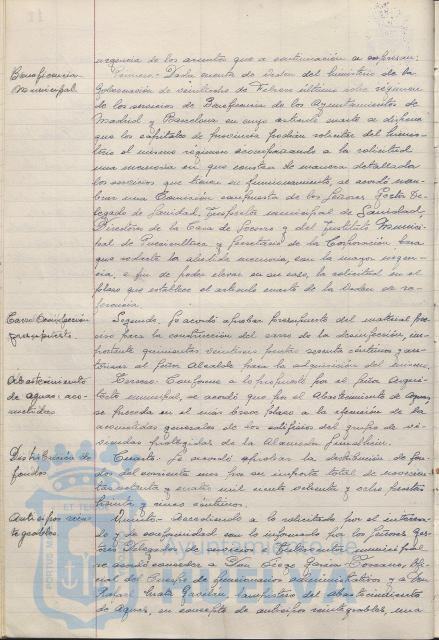 urgencia de los asuntos que a continuación se expresan:
Beneficencia Municipal.
Primero.- Dada cuenta de Orden del Ministerio de la
Gobernación de veintiocho de Febrero último sobre régimen
de los servicios de Beneficencia de los Ayuntamientos de
Madrid y Barcelona en cuyo artículo cuarto se dispone
que las capitales de provincia podrán solicitar del Minis-
terio el mismo régimen acompañando a la solicitud
una memoria en que consten de manera detallada
los servicios que tienen en funcionamiento, se acordó nom-
brar una Comisión compuesta de los Señores Gestor De-
legado de Sanidad, Inspector municipal de Sanidad,
Director de la Casa de Socorro y del Instituto Munici-
pal de Puericultura y Secretario de la Corporación para
que redacte la aludida memoria, con la mayor urgen-
cia, a fin de poder elevar en su caso, la solicitud en el
plazo que establece el artículo cuarto de la Orden de re-
ferencia.
Carro desinfección
presupuesto.
Segundo. Se acordó aprobar presupuesto del material pre-
ciso para la construcción del carro de la desinfección, im-
portante quinientas veintinueve pesetas sesenta céntimos y au-
torizar al Señor Alcalde para la adquisición del mismo.
Abastecimiento
de aguas: aco-
metidas
Tercero. Conforme a lo propuesto por el Señor Arqui-
tecto municipal, se acordó que por el Abastecimiento de Aguas,
se proceda en el más breve plazo a la ejecución de las
acometidas generales de los edificios del grupo de vi-
viendas protegidas de la Alameda Sundheim.
Distribución de
fondos.
Cuarto. Se acordó aprobar la distribución de fon-
dos del corriente mes por su importe total de novecien-
tas setenta y cuatro mil ciento ochenta y ocho pesetas
treinta y cinco céntimos.
Anticipos rein-
tegrables.
Quinto.- Accediendo a lo solicitado por el interesa-
do y de conformidad con lo informado por los Señores Ges-
tores Delegados de servicios e Intervención municipal
se acordó conceder a Don César García Toscano, Ofi-
cial del Cuerpo de funcionarios administrativos y a Don
Rafael Mata Gavilán, lampistero del abastecimiento
de Aguas, en concepto de anticipos reintegrables, una